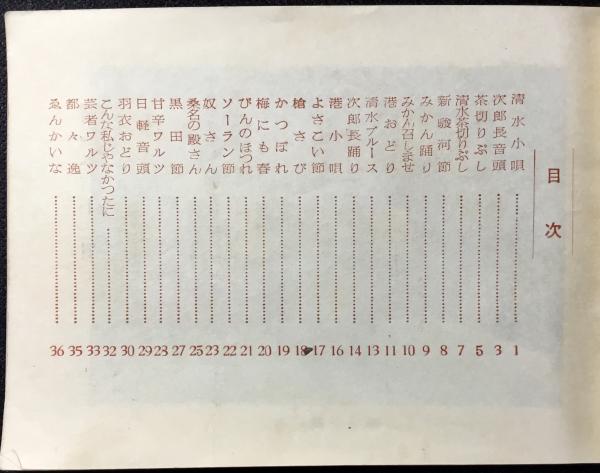 目次
清水小唄 1
次郎長音頭 3
茶切りぶし 5
清水茶切りぶし 7
新駿河節 8
みかん踊り 9
みかん召しませ 10
港おどり 11
清水ブルース 13
次郎長踊り 14
港小唄 16
よさこい節 17
槍さび 18
かつぽれ 19
梅にも春 20
びんのほつれ 21
ソーラン節 22
奴さん 23
桑名の殿さん 25
黒田節 27
甘辛ワルツ 28
日軽音頭 29
羽衣おどり 30
こんな私じやなかつたに 32
芸者ワルツ 33
都々逸 35
ゑんかいな 36